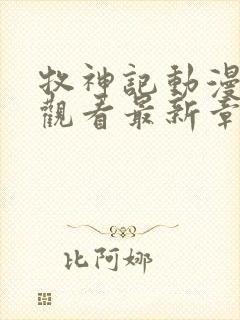 牧神記動漫
觀看最新章
比阿娜